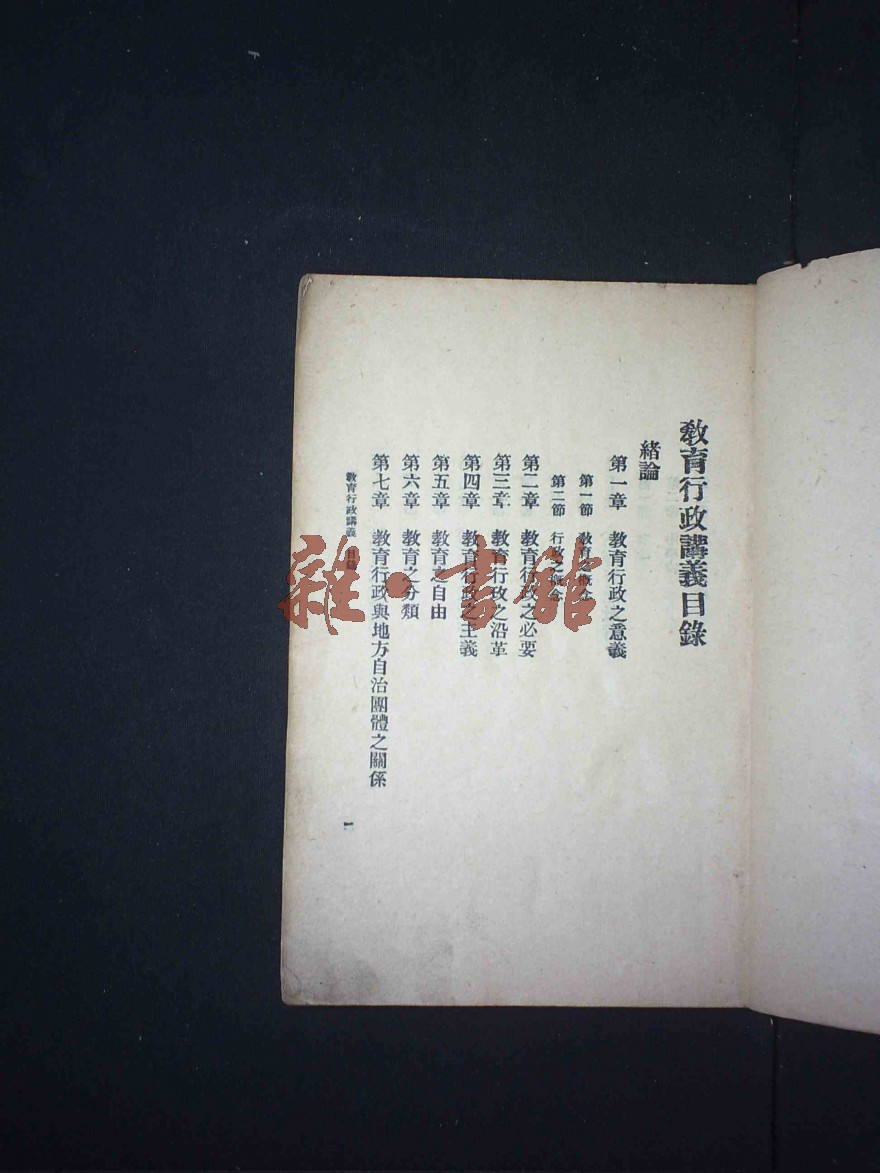 教育行政講義目錄
緒論
第一章　教育行政之意義
第一節　教育之概念
第二節　行政之概念
第二章　教育行政之必要
第三章　教育行政之沿革
第四章　教育行政之主義
第五章　教育之自由
第六章　教育之分類
第七章　教育行政與地方自治團體之關係
教育行政講義　目錄
一
雜·書館